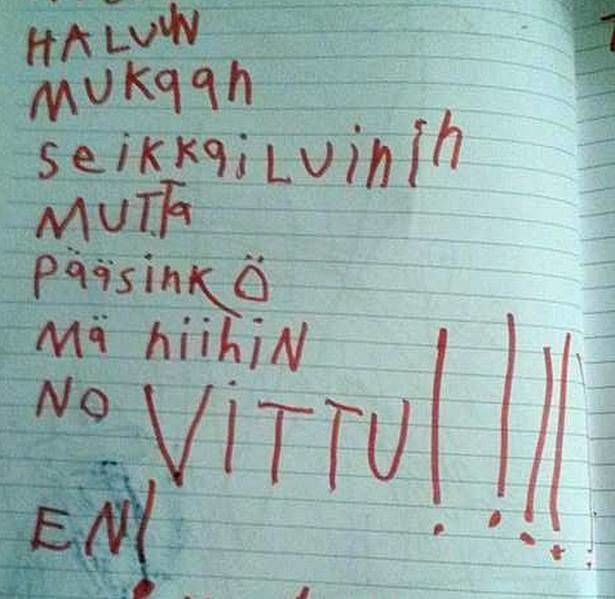 HALUUN
MUKaan
seiKKaiLUihiih
MUTTa
pääsinkÖ
Mä hiihiN
NO VITTU!!!!
EN!